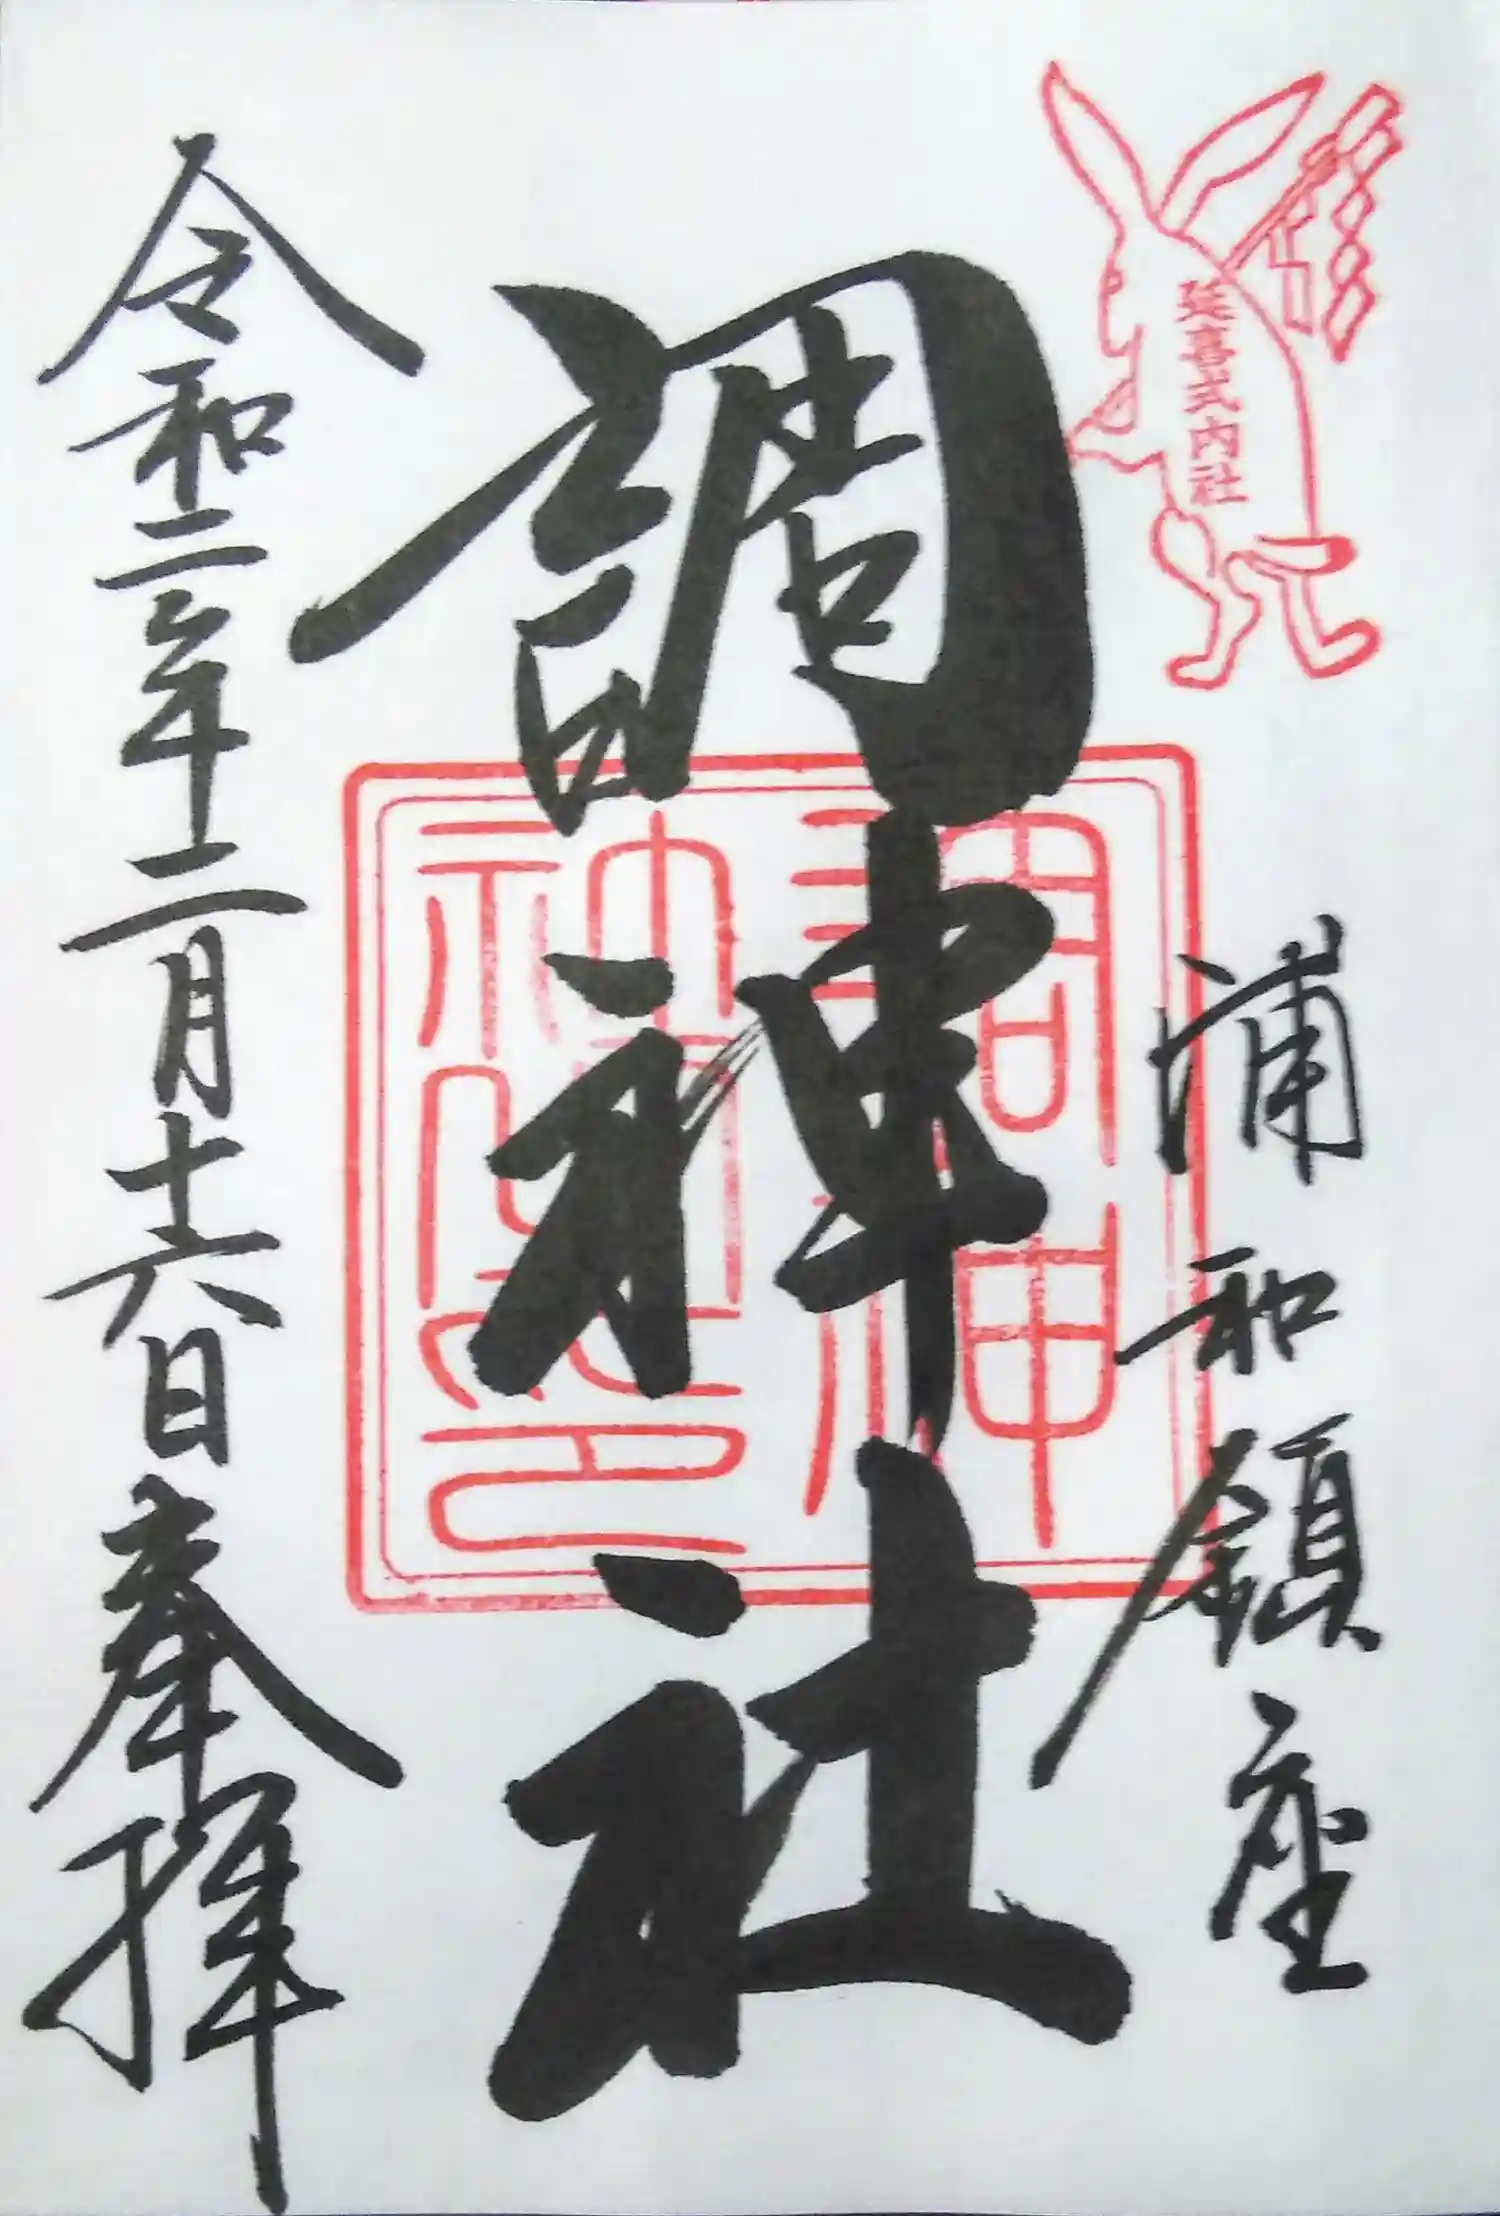 延喜式内社
浦和鎮座
調神社
調神社神璽之印
令和二年二月十六日奉拝